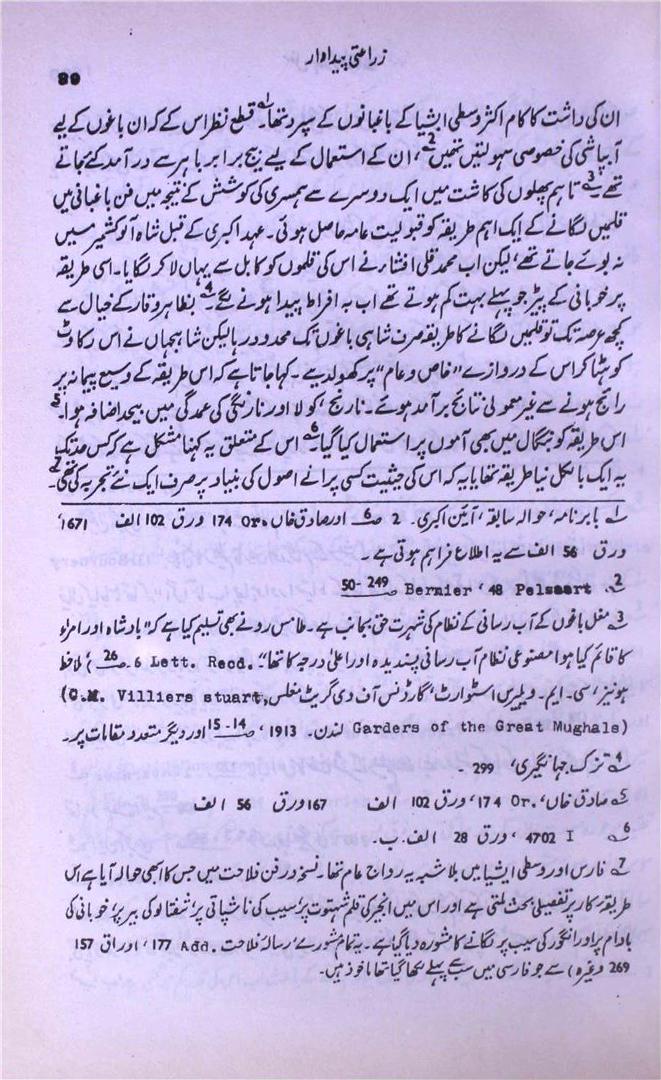 زراعتی پیداوار
89
ان کی داشت کا کام اکثر وسطی ایشیا کے باغبانوں کے سپرد تھا۔1 قطع نظر اس کے کہ ان باغوں کے لیے
آبپاشی کی خصوصی سہولتیں تھیں2، ان کے استعمال کے لیے بیج برابر باہر سے درآمد کئے جاتے
تھے۔3 تاہم پھلوں کی کاشت میں ایک دوسرے سے ہمسری کی کوشش کے نتیجہ میں فن باغبانی میں
قلمیں لگانے کے ایک اہم طریقہ کو قبولیت عامہ حاصل ہوئی۔ عہد اکبری کے قبل شاہ آلو کشمیر میں
نہ بوئے جاتے تھے، لیکن اب محمد قلی افشار نے اس کی قلموں کو کابل سے یہاں لا کر لگایا۔ اسی طریقہ
پر خوبانی کے پیڑ جو پہلے بہت کم ہوتے تھے اب بہ افراط پیدا ہونے لگے۔4 بظاہر وقار کے خیال سے
کچھ عرصہ تک تو قلمیں لگانے کا طریقہ صرف شاہی باغوں تک محدود رہا لیکن شاہجہاں نے اس رکاوٹ
کو ہٹا کر اس کے دروازے "خاص و عام" پر کھول دیے۔ کہا جاتا ہے کہ اس طریقہ کے وسیع پیمانہ پر
رائج ہونے سے غیر معمولی نتائج برآمد ہوئے۔ نارنج، کولا اور نارنگی کی عمدگی میں بیحد اضافہ ہوا۔5
اس طریقہ کو بنگال میں بھی آموں پر استعمال کیا گیا۔6 اس کے متعلق یہ کہنا مشکل ہے کہ کس حد تک یا
یہ ایک بالکل نیا طریقہ تھا یا یہ کہ اس کی حیثیت کسی پرانے اصول کی بنیاد پر صرف ایک نئے تجربہ کی تھی۔7
1 بابر نامہ، حوالہ سابقہ، آئین اکبری۔ 2 صـ 6 اور صادق خاں، Or. 174 ورق 102 الف، 1671
ورق 56 الف سے یہ اطلاع فراہم ہوتی ہے۔
2 Pelsaart 48، Bernier صـ 249-50
3 مغل باغوں کے آب رسانی کے نظام کی شہرت حق بجانب ہے۔ طامس رو نے بھی تسلیم کیا ہے کہ "بادشاہ اور امراء
کا قائم کیا ہوا مصنوعی نظام آب رسانی پسندیدہ اور اعلیٰ درجہ کا تھا"۔ Lett. Recd. 6، صـ 26) ملاحظہ
ہو نیز، سی۔ ایم۔ ویلیرس اسٹوارٹ، گارڈنس آف دی گریٹ مغلس، (C.M. Villiers stuart,
Garders of the Great Mughals) لندن۔ 1913، صـ 14-15 اور دیگر متعدد مقامات پر۔
4 تزک جہانگیری، 299۔
5 صادق خاں، Or. 174، ورق 102 الف 167 ورق 56 الف
6 I 4702، ورق 28 الف۔ ب۔
7 فارس اور وسطی ایشیا میں بلاشبہ یہ رواج عام تھا۔ نسخہ در فن فلاحت میں جس کا ابھی حوالہ آیا ہے اس
طریقۂ کار پر تفصیلی بحث ملتی ہے اور اس میں انجیر کی قلم شہتوت پر، سیب کی ناشپاتی پر، شفتالو کی بیر پر، خوبانی کی
بادام پر اور انگور کی سیب پر لگانے کا مشورہ دیا گیا ہے۔ یہ تمام شورے، رسالہ فلاحت Add. 177، اوراق 157
269 وغیرہ) سے جو فارسی میں سب سے پہلے لکھا گیا تھا ماخوذ ہیں۔